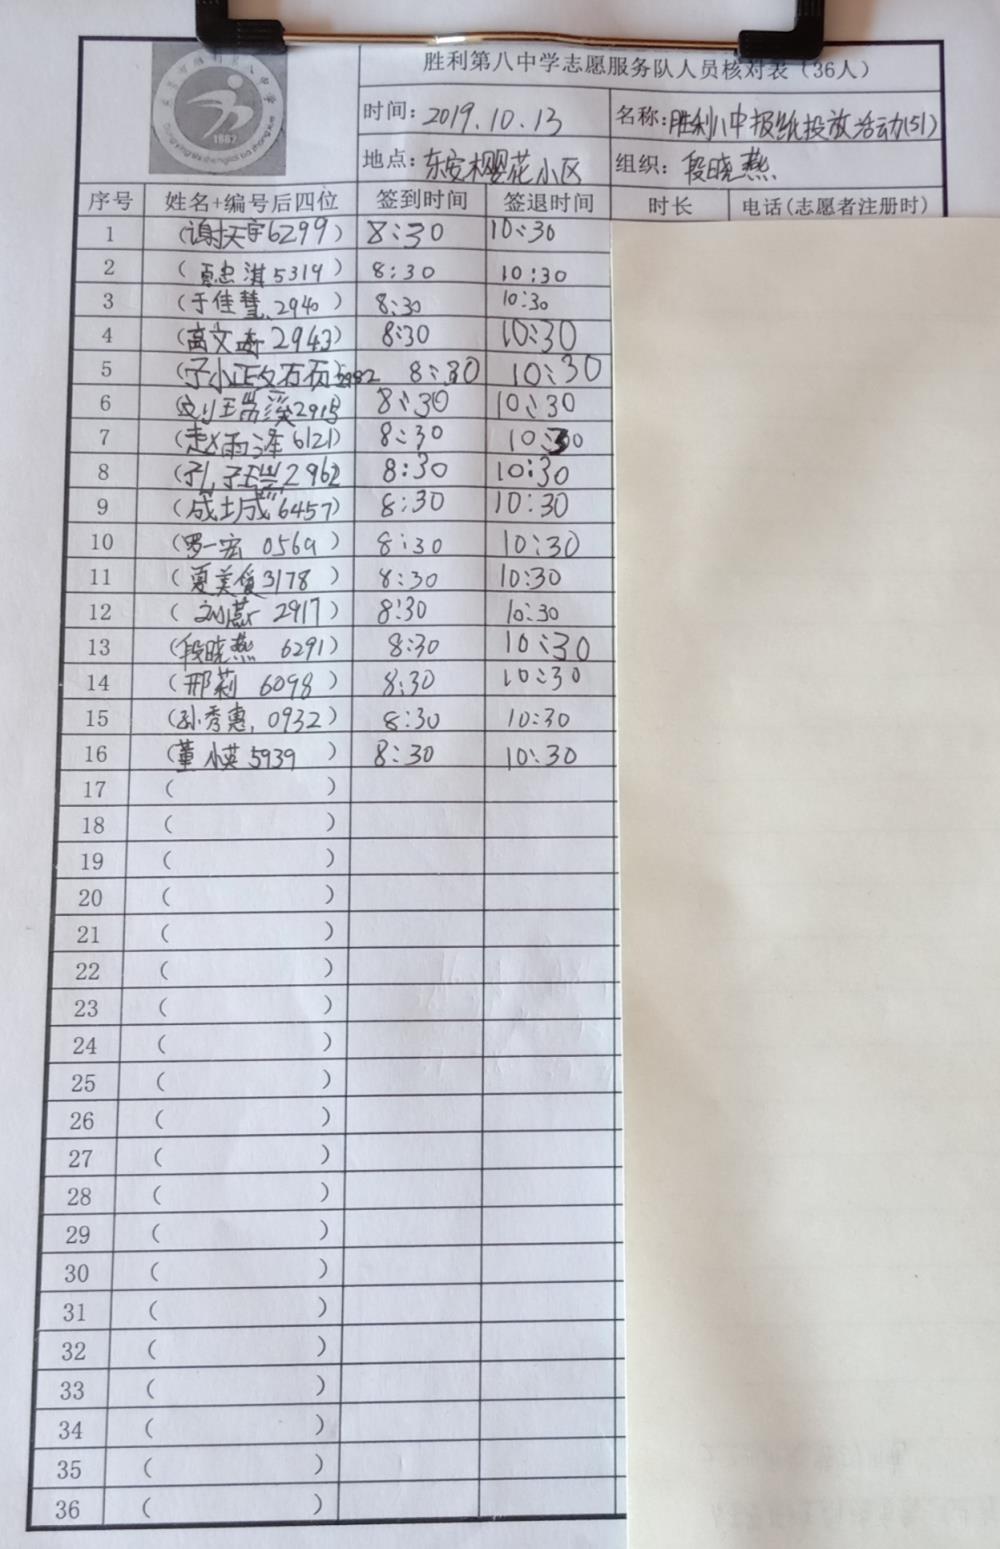 胜利第八中学志愿服务队人员核对表（36人）
时间：2019.10.13 名称：胜利八中报纸投放活动(51)
地点：东安樱花小区 组织：段晓燕
序号 姓名+编号后四位 签到时间 签退时间 时长 电话(志愿者注册时)
1 (谢天宇6299) 8:30 10:30
2 (淇5319) 8:30 10:30
3 (于佳慧.2940) 8:30 10:30
4 (高文 2943) 8:30 10:30
5 8:30 10:30
6 (刘玉 溪291) 8:30 10:30
7 (赵雨泽6121) 8:30 10:30
8 (孔子 2962 8:30 10:30
9 (成城6457) 8:30 10:30
10 (罗一宏 0569) 8:30 10:30
11 (夏美 3178) 8:30 10:30
12 (刘 2917) 8:30 10:30
13 (段晓燕 6291) 8:30 10:30
14 (邢莉 6098) 8:30 10:30
15 (孙秀惠.0932) 8:30 10:30
16 (董小英5939) 8:30 10:30
17 ( )
18 ( )
19 ( )
20 ( )
21 ( )
22 ( )
23 ( )
24 ( )
25 ( )
26 ( )
27 ( )
28 ( )
29 ( )
30 ( )
31 ( )
32 ( )
33 ( )
34 ( )
35 ( )
36 ( )